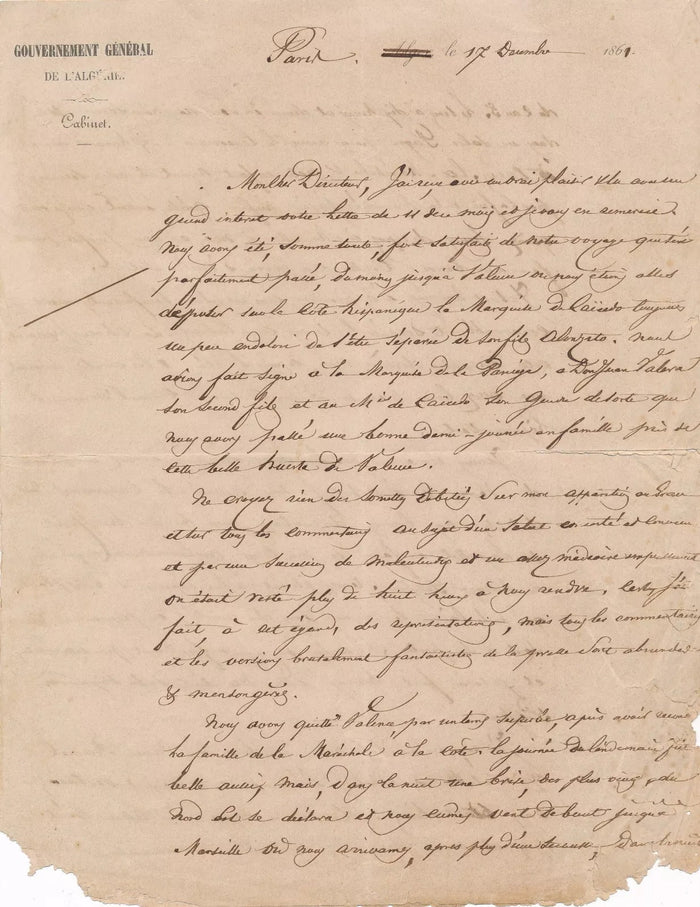 GOUVERNEMENT GÉNÉRAL
DE L'ALGÉRIE.
Cabinet.
Paris. Alger le 17 Décembre 1861.
Mon Cher Directeur, J'ai reçu avec un vrai plaisir & lu avec un
grand intérêt votre lettre de 11 de ce mois et je vous en remercie.
Nous avons été, somme toute, fort satisfaits de notre voyage qui s'est
parfaitement passé, du moins jusqu'à Valence où nous étions allés
déposer sur la côte hispanique la Marquise de Caïcedo toujours
un peu endolorie de s'être séparée de son fils Alonzato. Nous
avions fait signe à la Marquise de la Paniega, à Don Juan Valera
son second fils et au Mis de Caïcedo son Gendre de sorte que
nous avons passé une bonne demi-journée en famille près de
cette belle huerta de Valence.
Ne croyez rien des sornettes débitées sur mon
et sur tous les commentaires au sujet d'un salut
et par une succession de malentendus et un assez médiocre
on était resté plus de huit heures à nous rendre. J'ai
fait, à cet égard, des représentations, mais tous les commentaires
et les versions brutalement fantaisistes de la presse sont absurdes
& mensongères.
Nous avons quitté Valence, par un temps superbe, après avoir
la famille de la Maréchale à la côte. La journée du lendemain fut
belle aussi, mais, dans la nuit une brise, des plus vives, du
Nord Est se déclara et nous eûmes vent debout jusqu'à
Marseille où nous arrivames, après plus d'une secousse, dans la nuit